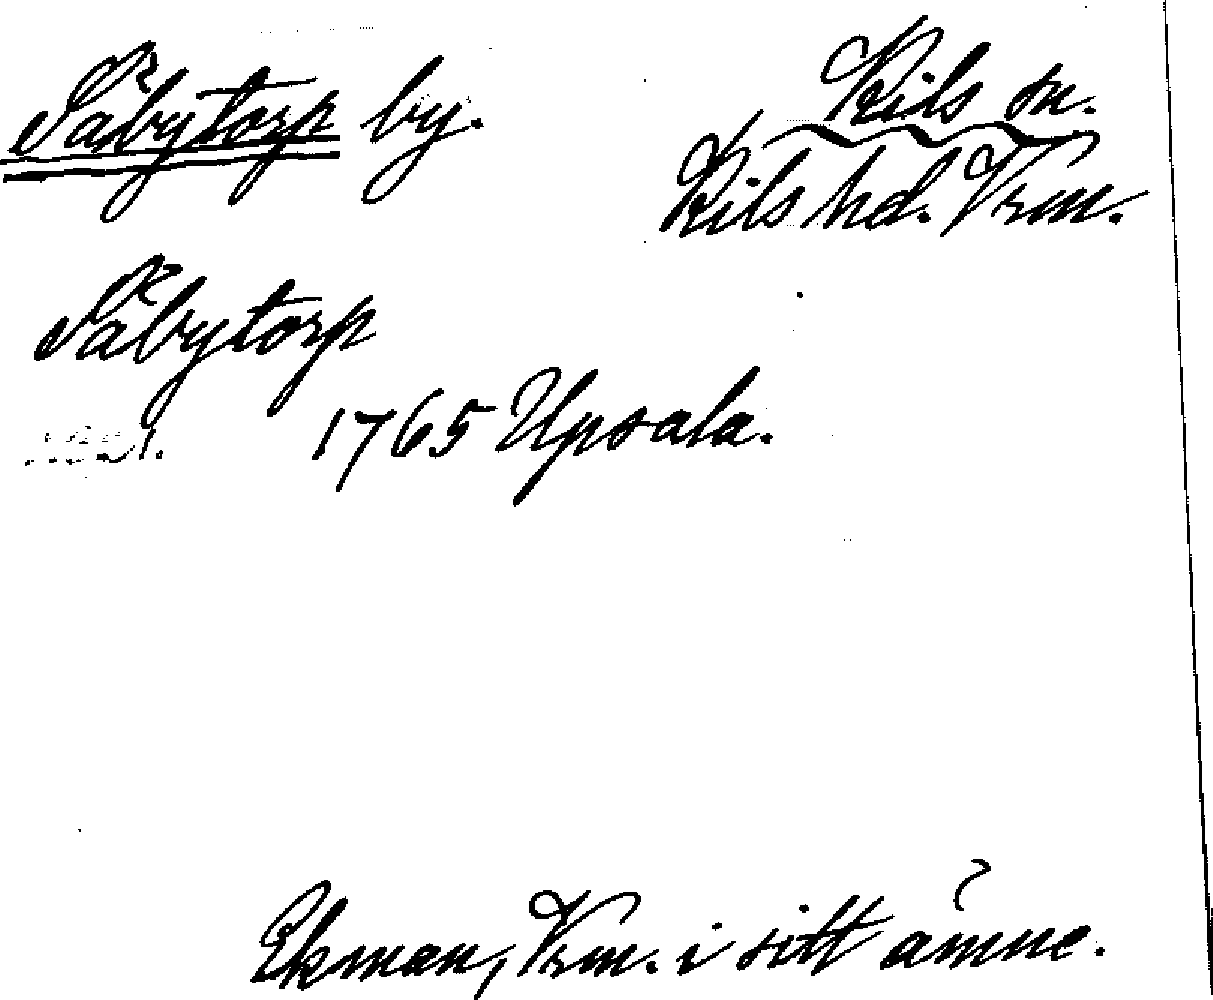 Säbytorp by.
Kils sn.
Kils hd. Vrm.
Säbytorp
1765 Upsala.
Ekman, Vrm. i sitt ämne.